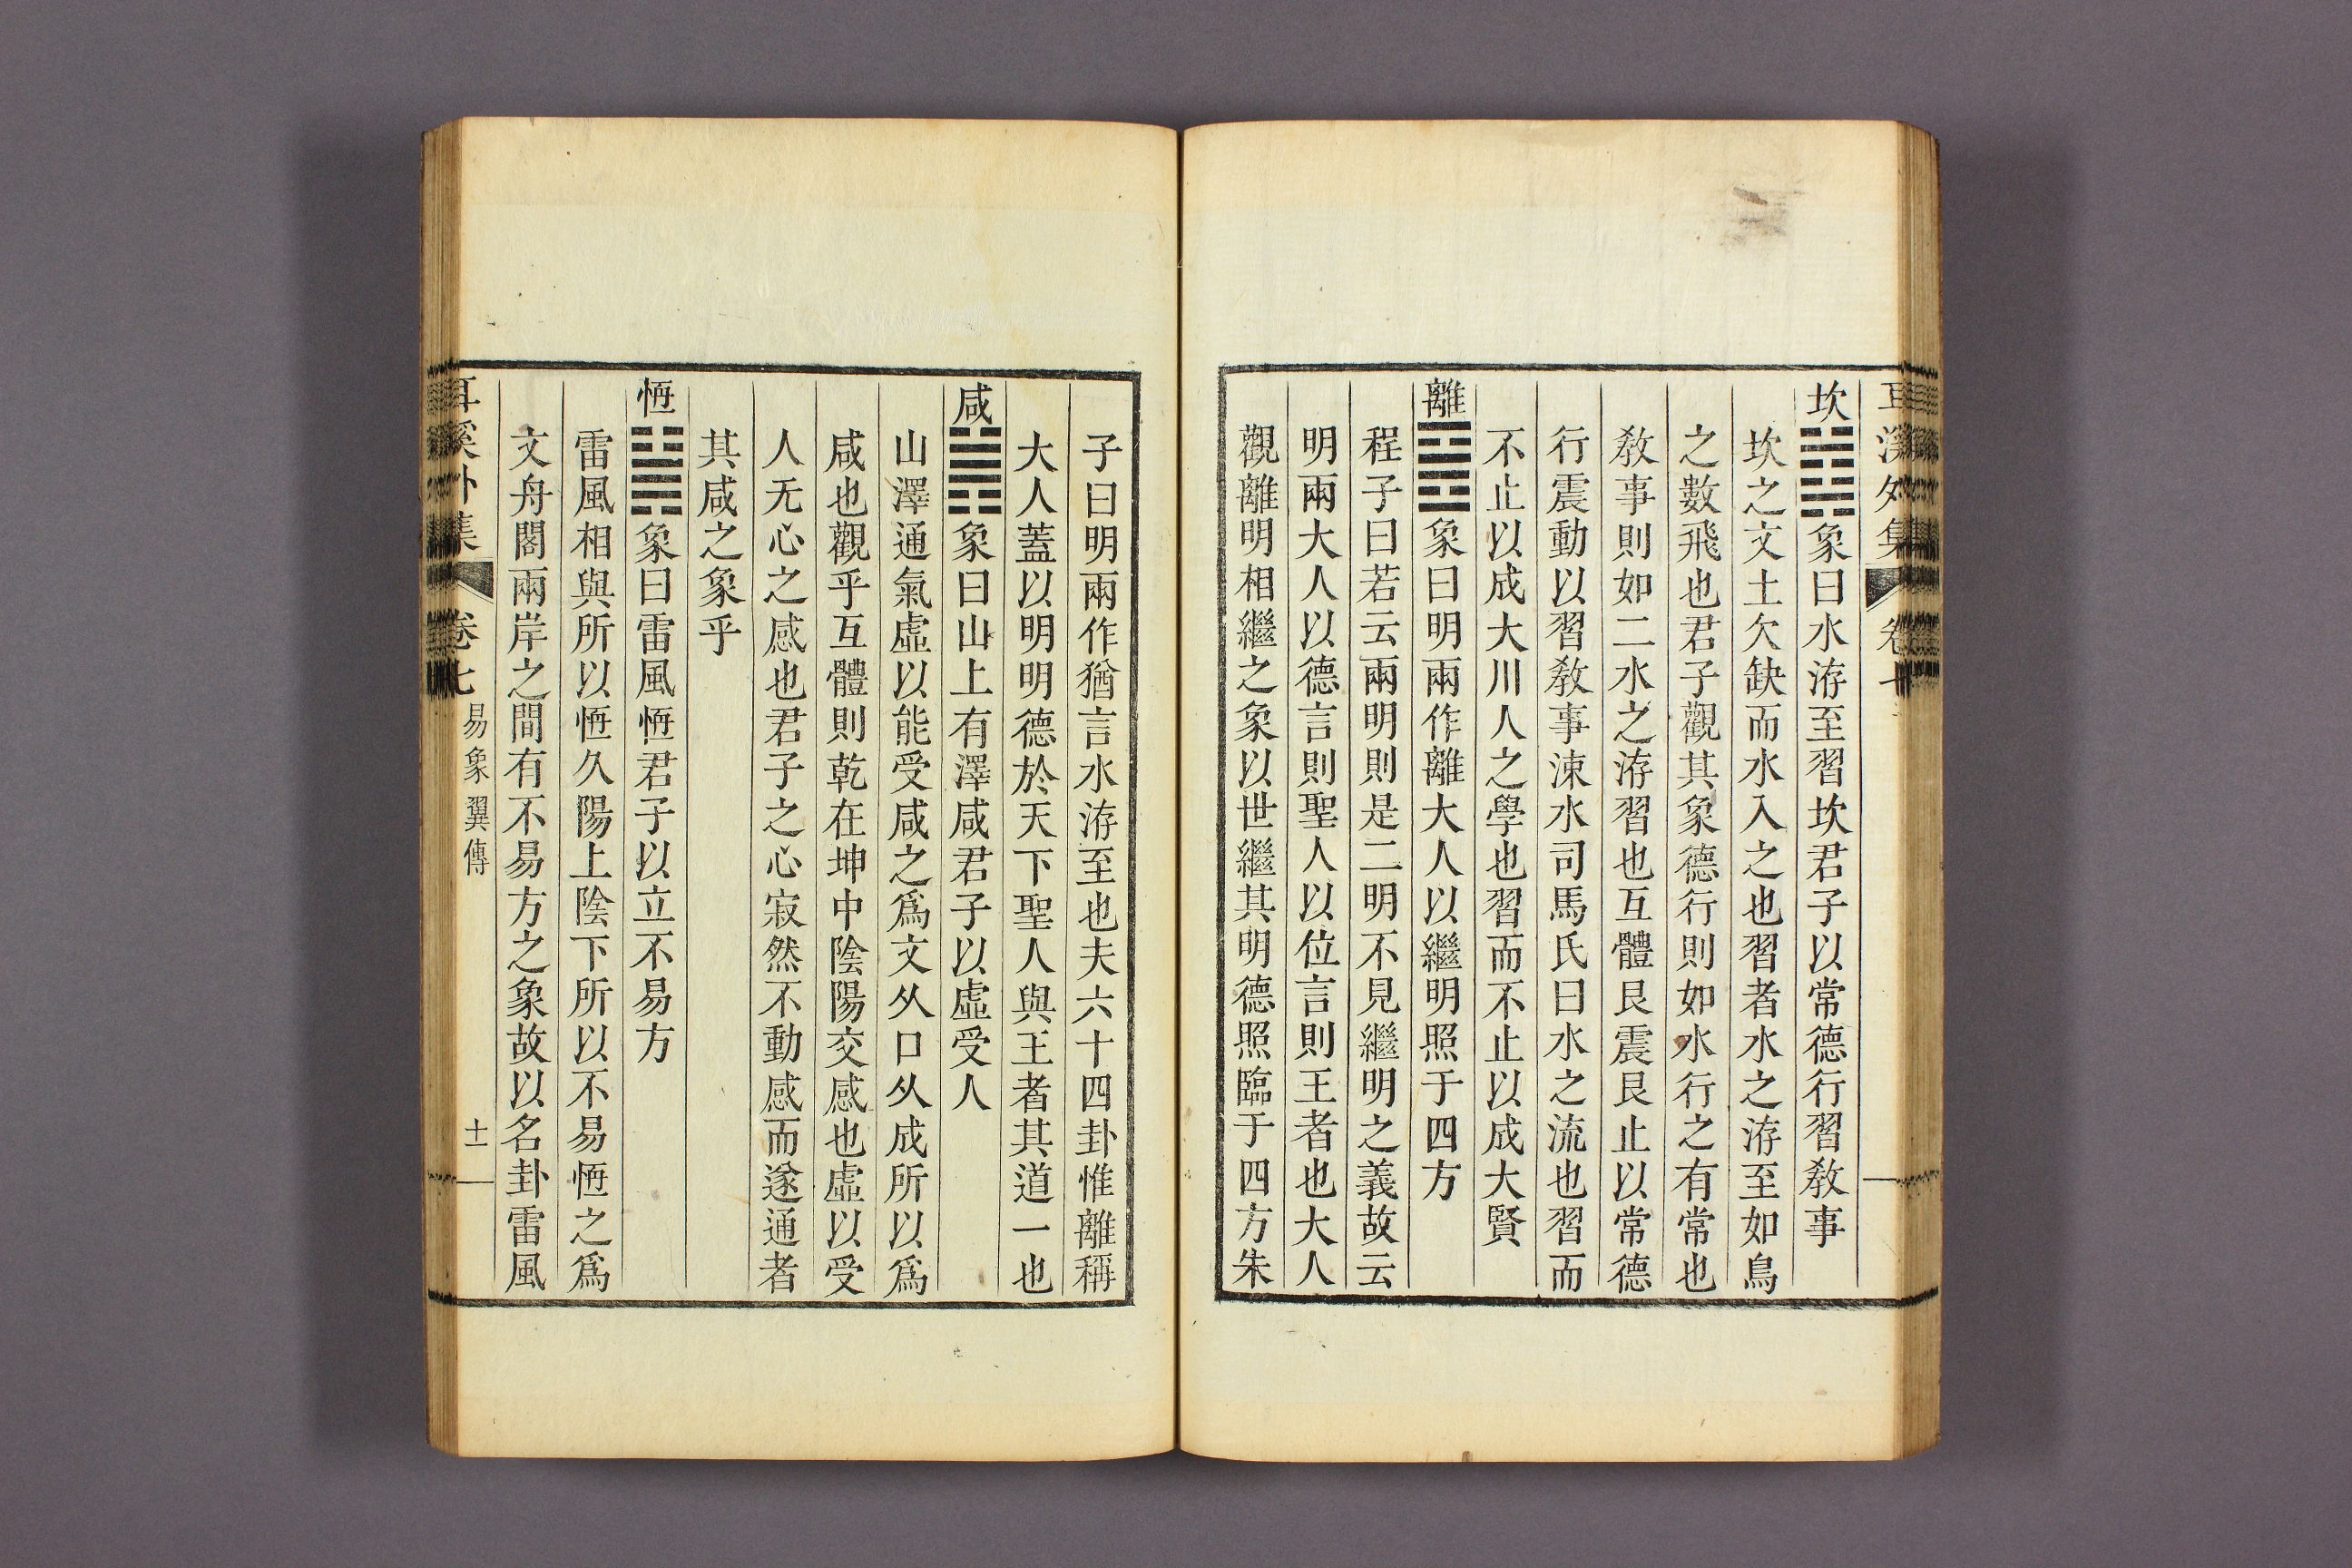 耳溪外集 卷七
坎䷜象曰水洊至習坎君子以常德行習敎事
坎之文土欠缺而水入之也習者水之洊至如鳥
之數飛也君子觀其象德行則如水行之有常也
敎事則如二水之洊習也互體艮震艮止以常德
行震動以習敎事涑水司馬氏曰水之流也習而
不止以成大川人之學也習而不止以成大賢
離䷝象曰明兩作離大人以繼明照于四方
程子曰若云兩明則是二明不見繼明之義故云
明兩大人以德言則聖人以位言則王者也大人
觀離明相繼之象以世繼其明德照臨于四方朱
子曰明兩作猶言水洊至也夫六十四卦惟離稱
大人蓋以明明德於天下聖人與王者其道一也
咸䷞象曰山上有澤咸君子以虛受人
山澤通氣虛以能受咸之爲文从口从成所以爲
咸也觀乎互體則乾在坤中陰陽交感也虛以受
人无心之感也君子之心寂然不動感而遂通者
其咸之象乎
恆䷟象曰雷風恆君子以立不易方
雷風相與所以恆久陽上陰下所以不易恆之爲
文舟閣兩岸之間有不易方之象故以名卦雷風
耳溪外集 卷七 易象翼傳 十一